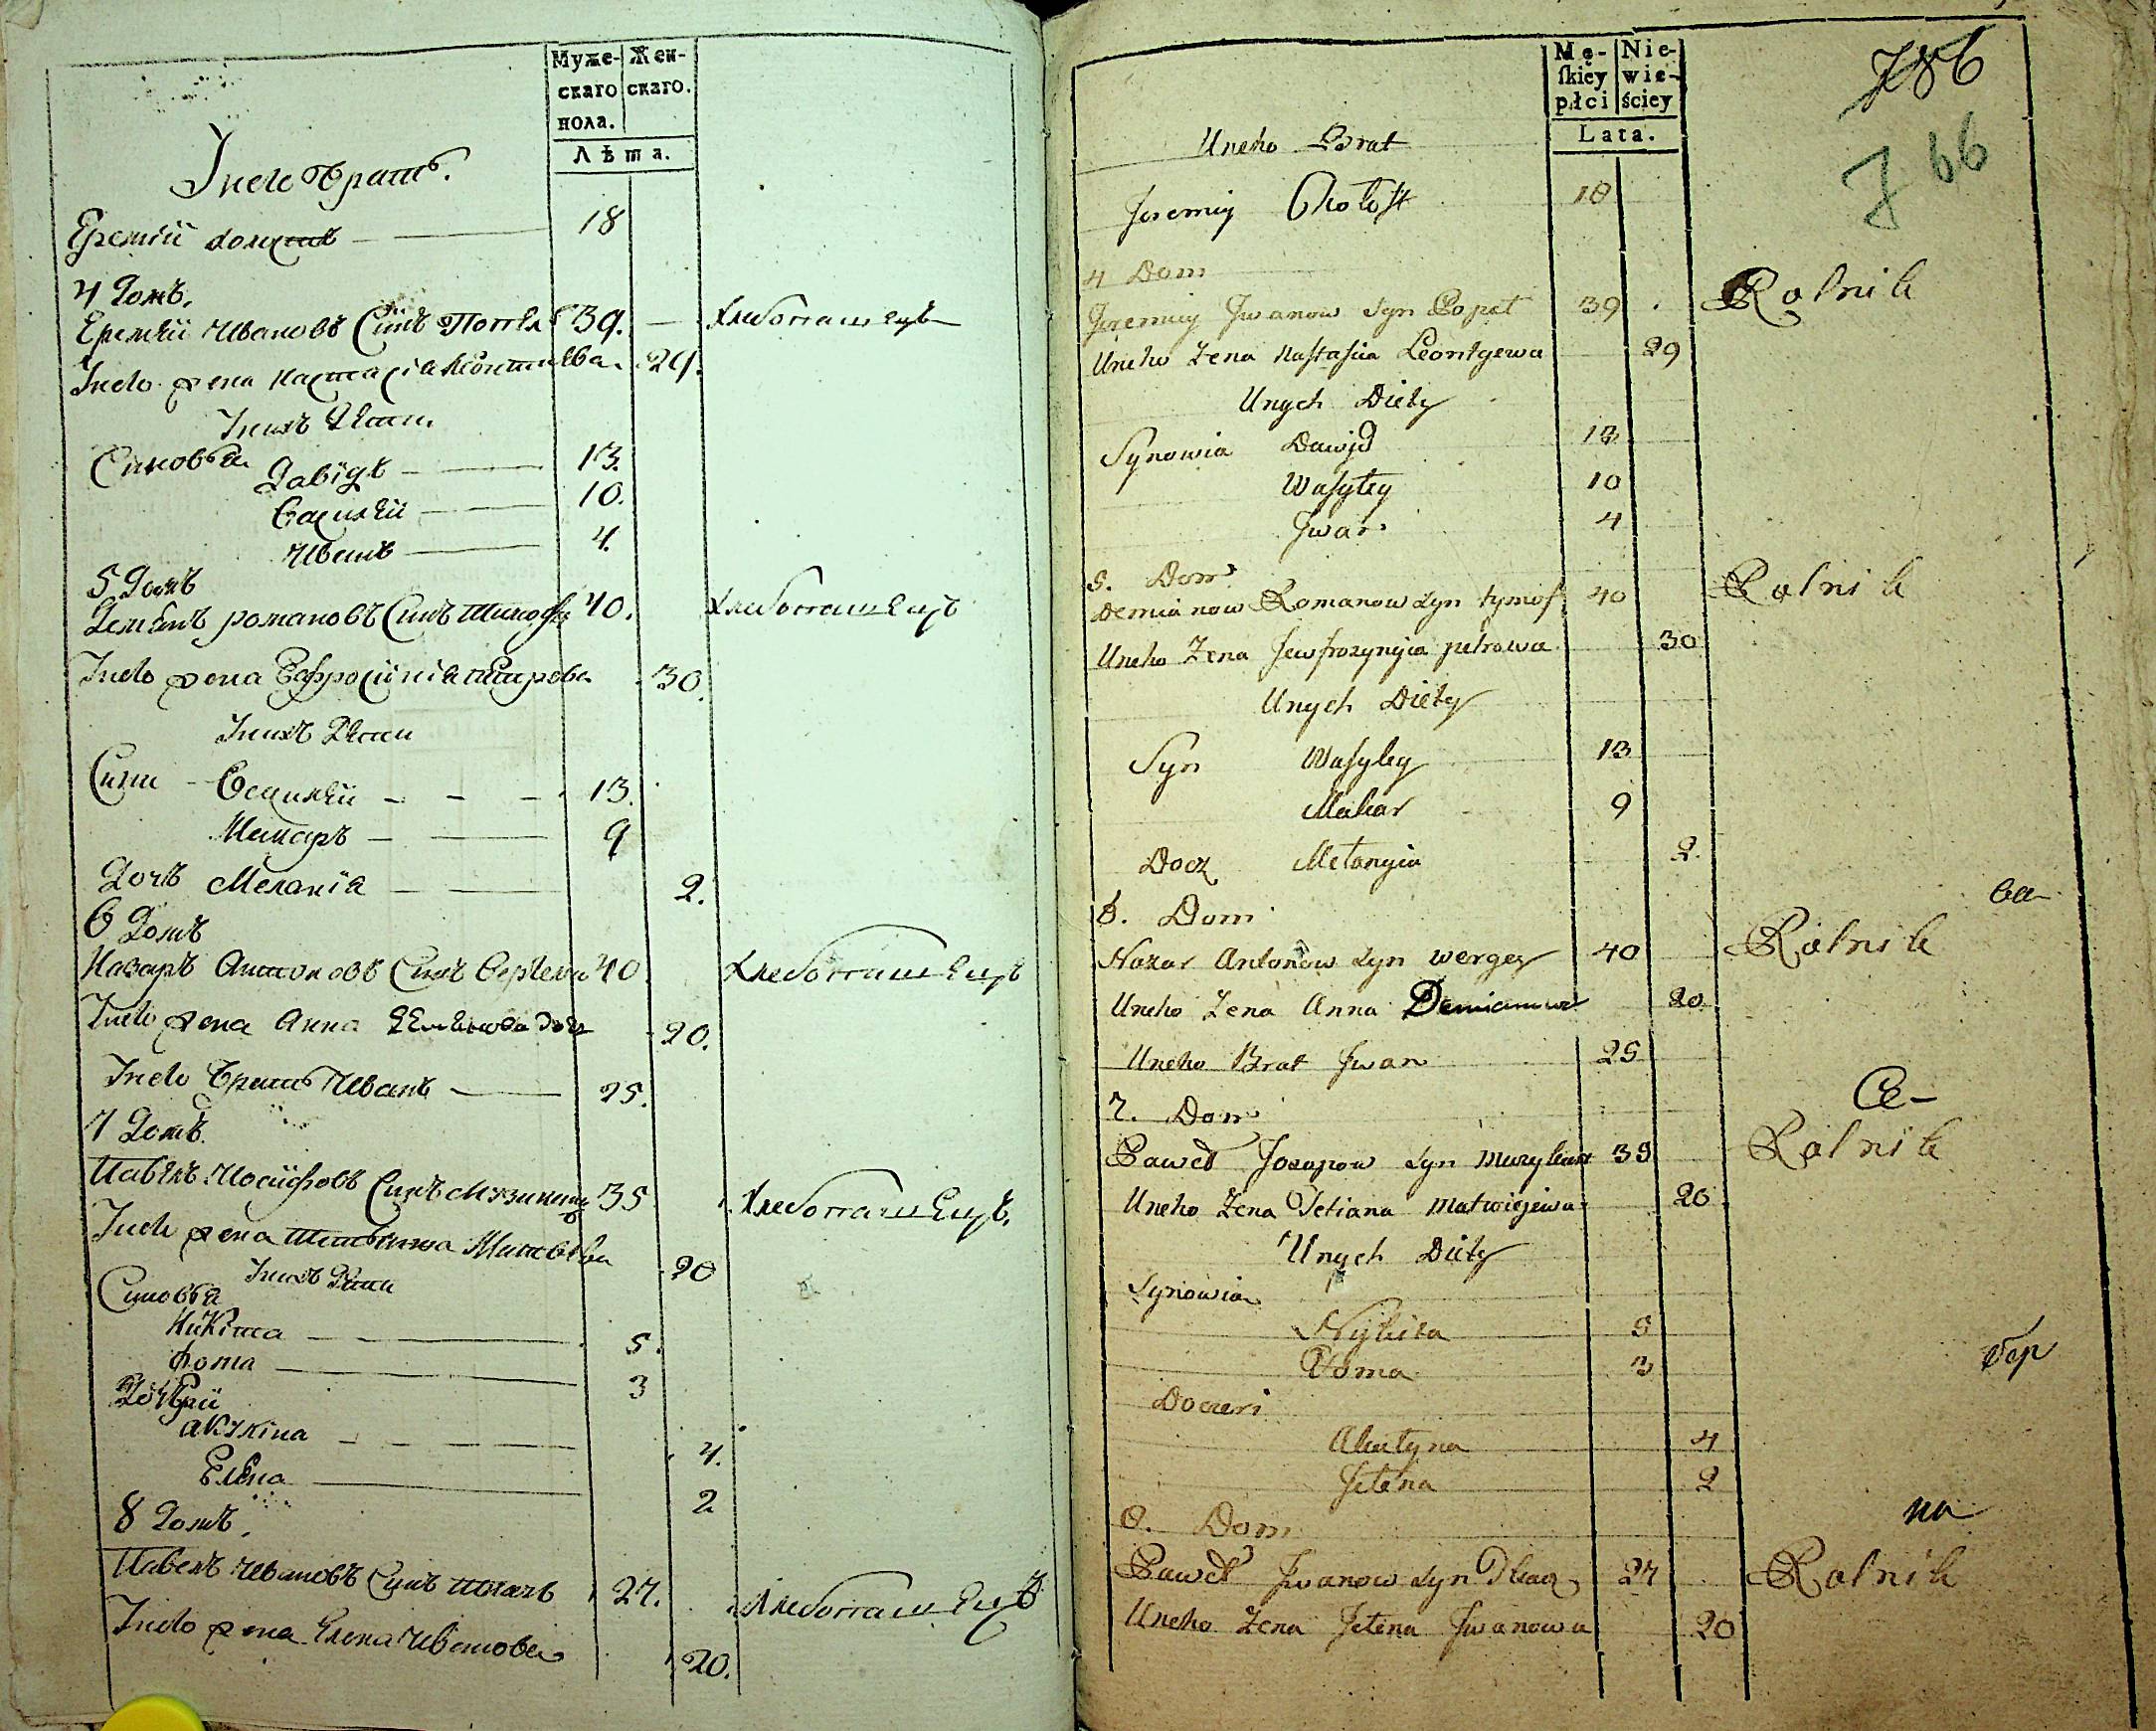 Муже-
скаго
пола.
Жен-
скаго.
Лѣта.
Унего братъ.
Еремѣй холостъ 18
4 Домъ.
Еремѣй Ивановъ Синъ Попел 39. Хлебопашецъ
Унего жена Настасіа Леонтиева. 29.
Унихъ Дѣти.
Синовъя Давидъ 13.
Василѣй 10.
Иванъ 4.
5 Домъ
Демянъ романовъ Синъ тимофе 40. Хлебопашецъ
Унего жена Евфросиніа петрова 30.
Унихъ Дѣти
Сини Василѣй 13.
Макаръ 9
Дочъ Меланіа 2.
6 Домъ
Назаръ Антоновъ Синъ 40. Хлебопашецъ
Унего жена Анна 20.
Унего братъ Иванъ 25.
7 Домъ.
Павелъ Иосифовъ Синъ 35 Хлебопашецъ.
Унего жена Матвѣева 20
Унихъ Дѣти
Синовъя
Никита 5.
Фома 3
Дочери
Акулина 4.
Елена 2
8 Домъ.
Павелъ Ивановъ Синъ ткачъ 27. Хлебопашецъ
Унего жена Елена Иванова 20.
Mę-
ſkiey
płci
Nie-
wie-
ściey
Lata.
786
766
Uneho Brat
Jeremiy Chołost 18
4 Dom
Jeremiy Jwanow Syn Popel 39 Rolnik
Uneho Zena Nastasiia Leontyewa 29
Unych Diety
Synowia Dawid 13
Wasyley 10
Jwan 4
5. Dom
Demianow Romanow Syn tymof 40 Rolnik
Uneho Zena Jewfrozynyia petrowa 30
Unych Diety
Syn Wasyley 13
Makar 9
Docz Mełanyia 2
6. Dom
Nazar Antonow Syn wergey 40 Rolnik
Uneho Zena Anna Demianowa 20
Uneho Brat Jwan 25
7. Dom
Paweł Jozapow Syn 35 Rolnik
Uneho Zena Tetiana Matwiejewa 20
Unych Diety
Synowia
Nykita 5
Foma 3
Doczeri
Akulyna 4
Jełena 2
8. Dom
на
Paweł Jwanow Syn Tkacz 27 Rolnik
Uneho Zena Jełena Jwanowa 20